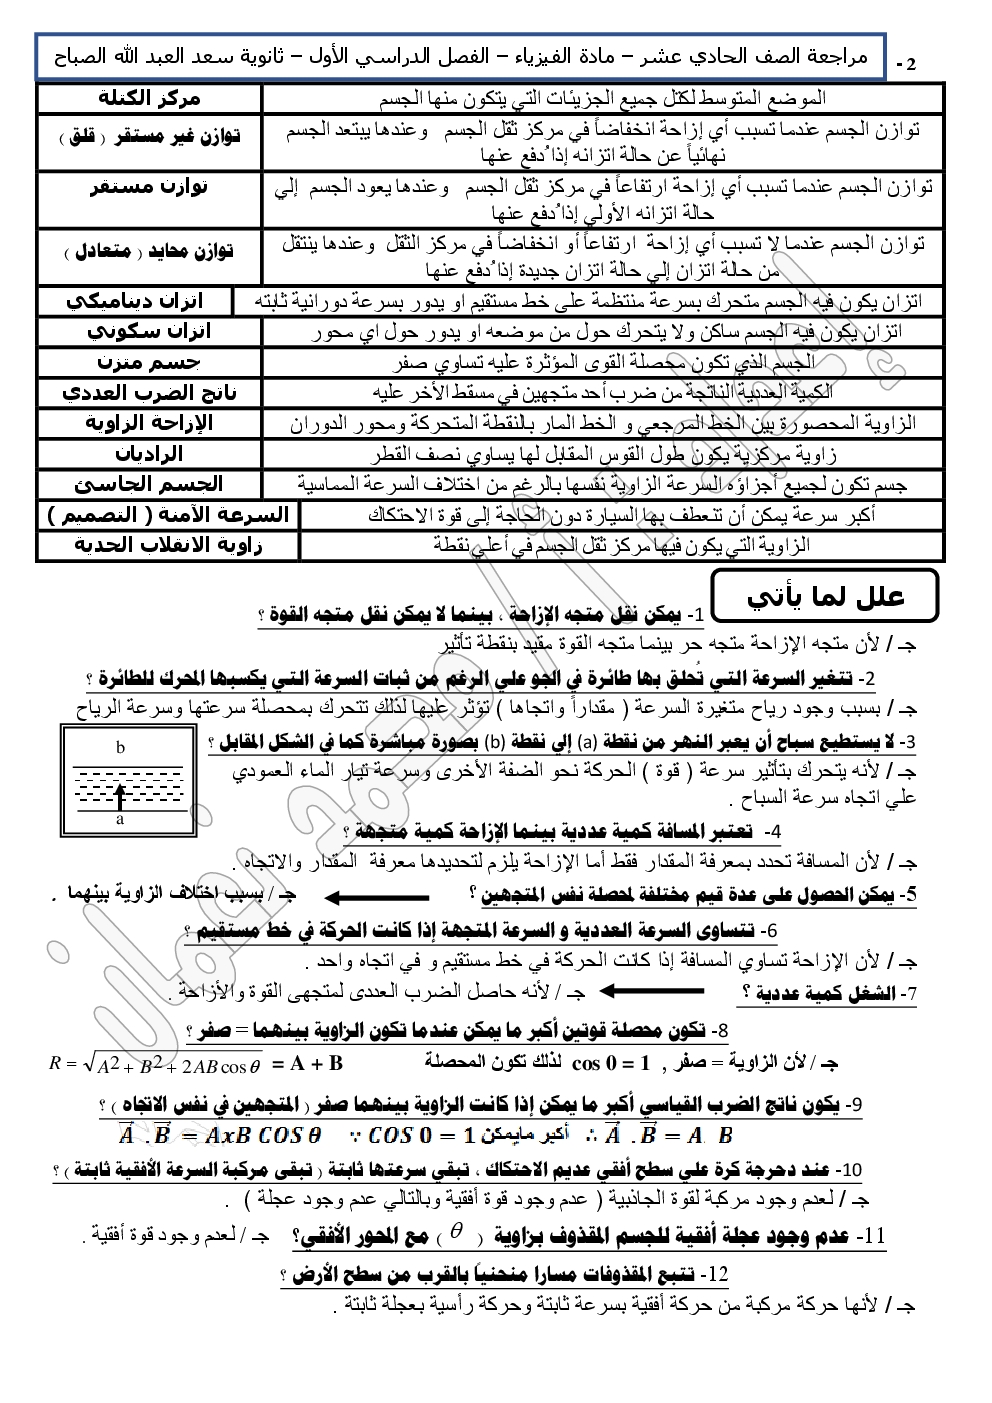 2 -
مراجعة الصف الحادي عشر – مادة الفيزياء – الفصل الدراسي الأول – ثانوية سعد العبد الله الصباح
الموضع المتوسط لكتل جميع الجزيئات التي يتكون منها الجسم
مركز الكتلة
توازن الجسم عندما تسبب أي إزاحة انخفاضاً في مركز ثقل الجسم وعندها يبتعد الجسم
نهائياً عن حالة اتزانه إذا ُدفع عنها
توازن غير مستقر ( قلق )
توازن الجسم عندما تسبب أي إزاحة ارتفاعاً في مركز ثقل الجسم وعندها يعود الجسم إلي
حالة اتزانه الأولي إذا ُدفع عنها
توازن مستقر
توازن الجسم عندما لا تسبب أي إزاحة ارتفاعاً أو انخفاضاً في مركز الثقل وعندها ينتقل
من حالة اتزان إلي حالة اتزان جديدة إذا ُدفع عنها
توازن محايد ( متعادل )
اتزان يكون فيه الجسم متحرك بسرعة منتظمة على خط مستقيم او يدور بسرعة دورانية ثابته
اتزان ديناميكي
اتزان يكون فيه الجسم ساكن ولا يتحرك حول من موضعه او يدور حول اي محور
اتزان سكوني
الجسم الذي تكون محصلة القوى المؤثرة عليه تساوي صفر
جسم متزن
الكمية العددية الناتجة من ضرب أحد متجهين في مسقط الأخر عليه
ناتج الضرب العددي
الزاوية المحصورة بين الخط المرجعي و الخط المار بالنقطة المتحركة ومحور الدوران
الإزاحة الزاوية
زاوية مركزية يكون طول القوس المقابل لها يساوي نصف القطر
الراديان
جسم تكون لجميع أجزاؤه السرعة الزاوية نفسها بالرغم من اختلاف السرعة المماسية
الجسم الجاسئ
أكبر سرعة يمكن أن تنعطف بها السيارة دون الحاجة إلى قوة الاحتكاك
السرعة الآمنة ( التصميم )
الزاوية التي يكون فيها مركز ثقل الجسم في أعلي نقطة
زاوية الانقلاب الحدية
علل لما يأتي
1- يمكن نقل متجه الإزاحة ، بينما لا يمكن نقل متجه القوة ؟
جـ / لأن متجه الإزاحة متجه حر بينما متجه القوة مقيد بنقطة تأثير
2- تتغير السرعة التي تُحلق بها طائرة في الجو علي الرغم من ثبات السرعة التي يكسبها المحرك للطائرة ؟
جـ / بسبب وجود رياح متغيرة السرعة ( مقداراً واتجاها ) تؤثر عليها لذلك تتحرك بمحصلة سرعتها وسرعة الرياح
3- لا يستطيع سباح أن يعبر النهر من نقطة (a) إلي نقطة (b) بصورة مباشرة كما في الشكل المقابل ؟
جـ / لأنه يتحرك بتأثير سرعة ( قوة ) الحركة نحو الضفة الأخرى وسرعة تيار الماء العمودي
علي اتجاه سرعة السباح .
b
a
4- تعتبر المسافة كمية عددية بينما الإزاحة كمية متجهة ؟
جـ / لأن المسافة تحدد بمعرفة المقدار فقط أما الإزاحة يلزم لتحديدها معرفة المقدار والاتجاه .
5- يمكن الحصول على عدة قيم مختلفة لمحصلة نفس المتجهين ؟ جـ / بسبب اختلاف الزاوية بينهما .
6- تتساوى السرعة العددية و السرعة المتجهة إذا كانت الحركة في خط مستقيم ؟
جـ / لأن الإزاحة تساوي المسافة إذا كانت الحركة في خط مستقيم و في اتجاه واحد .
7- الشغل كمية عددية ؟ جـ / لأنه حاصل الضرب العددى لمتجهى القوة والأزاحة .
8- تكون محصلة قوتين أكبر ما يمكن عندما تكون الزاوية بينهما = صفر ؟
جـ / لأن الزاوية = صفر , cos 0 = 1 لذلك تكون المحصلة R = √A2 + B2 + 2AB cos θ = A + B
9- يكون ناتج الضرب القياسي أكبر ما يمكن إذا كانت الزاوية بينهما صفر ( المتجهين في نفس الاتجاه ) ؟
A⃗ . B⃗ = AxB COS θ ∵ COS 0 = 1 أكبر مايمكن ∴ A⃗ . B⃗ = A B
10- عند دحرجة كرة علي سطح أفقي عديم الاحتكاك ، تبقي سرعتها ثابتة ( تبقى مركبة السرعة الأفقية ثابتة ) ؟
جـ / لعدم وجود مركبة لقوة الجاذبية ( عدم وجود قوة أفقية وبالتالي عدم وجود عجلة ) .
11- عدم وجود عجلة أفقية للجسم المقذوف بزاوية ( θ ) مع المحور الأفقي؟ جـ / لعدم وجود قوة أفقية .
12- تتبع المقذوفات مسارا منحنياً بالقرب من سطح الأرض ؟
جـ / لأنها حركة مركبة من حركة أفقية بسرعة ثابتة وحركة رأسية بعجلة ثابتة .
إعداد : أ / محمد نعمان